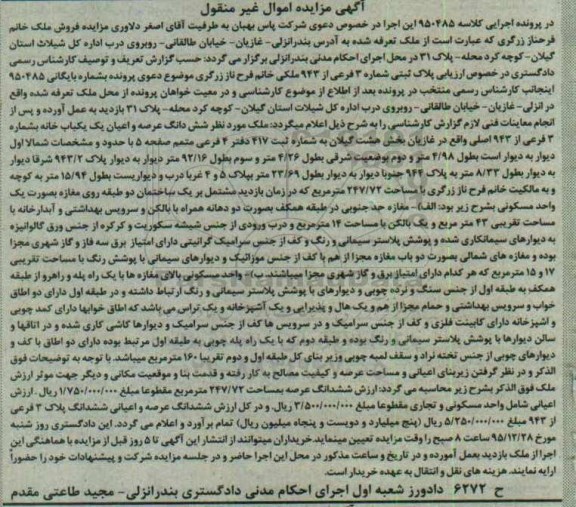 آگهی مزایده اموال غیر منقول
در پرونده اجرایی کلاسه ۹۵۰۴۸۵ این اجرا در خصوص دعوی شرکت پاس بهبان به طرفیت آقای اصغر دلاوری مزایده فروش ملک خانم
فرحناز زرگری که عبارت است از ملک تعرفه شده به آدرس بندرانزلی- غازیان- خیابان طالقانی- روبروی درب اداره کل شیلات استان
گیلان- کوچه کرد محله- پلاک ۳۱ در محل اجرای احکام مدنی بندرانزلی برگزار می گردد: حسب گزارش تعریف و توصیف کارشناس رسمی
دادگستری در خصوص ارزیابی پلاک ثبتی شماره ۳ فرعی از ۹۴۳ ملکی خانم فرح ناز زرگری موضوع دعوی پرونده بشماره بایگانی ۹۵۰۴۸۵
اینجانب کارشناس رسمی منتخب در پرونده بعد از اطلاع از موضوع کارشناسی و در معیت خواهان پرونده از محل ملک تعرفه شده واقع
در انزلی- غازیان- خیابان طالقانی- روبروی درب اداره کل شیلات استان گیلان- کوچه کرد محله- پلاک ۳۱ بازدید به عمل آورده و پس از
انجام معاینات فنی لازم گزارش کارشناسی را به شرح ذیل اعلام میگردد: ملک مورد نظر شش دانگ عرصه و اعیان یک یکباب خانه بشماره
۳ فرعی از ۹۴۳ اصلی واقع در غازیان بخش هشت گیلان به شماره ثبت ۴۱۷ دفتر ۴ فرعی متمم صفحه ۵ با حدود و مشخصات شمالا اول
دیوار به دیوار است بطول ۴/۹۸ متر و دوم بوضعیت شرقی بطول ۴/۲۶ متر و سوم بطول ۹۲/۱۶ متر دیوار به دیوار پلاک ۹۴۳/۲ شرقا دیوار
به دیوار بطول ۸/۳۳ متر به پلاک ۹۴۴ جنوبا دیوار به دیوار بطول ۲۳/۶۹ متر بپلاک ۵ و ۴ غربا درب و دیواریست بطول ۱۵/۹۴ متر به کوچه
و به مالکیت خانم فرح ناز زرگری با مساحت ۲۴۷/۷۲ مترمربع که در زمان بازدید مشتمل بر یک ساختمان دو طبقه روی مغازه بصورت یک
واحد مسکونی بشرح زیر بود: الف)- مغازه حد جنوبی در طبقه همکف بصورت دو دهانه همراه با بالکن و سرویس بهداشتی و آبدارخانه با
مساحت تقریبی ۴۳ متر مربع و یک بالکن با مساحت ۱۴ مترمربع و درب ورودی از جنس شیشه سکوریت و کرکره از جنس ورق گالوانیزه
به دیوارهای سیمانکاری شده و پوشش پلاستر سیمانی و رنگ و کف از جنس سرامیک گرانیتی دارای امتیاز برق سه فاز و گاز شهری مجزا
بوده و مغازه های شمالی بصورت دو باب مغازه مجزا از هم با کف از جنس موزائیک و دیوارهای سیمانی با پوشش رنگ با مساحت تقریبی
۱۷ و ۱۵ مترمربع که هر کدام دارای امتیاز برق و گاز شهری مجزا میباشند. ب)- واحد مسکونی بالای مغازه ها با یک راه پله و راهرو از طبقه
همکف به طبقه اول از جنس سنگ و نرده چوبی و دیوارهای با پوشش پلاستر سیمانی و رنگ ارتباط داشته و در طبقه اول دارای دو اطاق
خواب و سرویس بهداشتی و حمام مجزا از هم و یک هال و پذیرایی و یک آشپزخانه و یک تراس می باشد که اطاق خوابها دارای کمد چوبی
و اشپزخانه دارای کابینت فلزی و کف از جنس سرامیک و در سرویس ها کف از جنس سرامیک و دیوارها کاشی کاری شده و در اتاقها و
سالن دیوارها با پوشش پلاستر سیمانی و رنگ بوده و طبقه دوم که با یک راه پله چوبی به طبقه اول مرتبط بوده دارای دو اطاق با کف و
دیوارهای چوبی از جنس تخته نراد و سقف لمبه چوبی وزیر بنای کل طبقه اول و دوم تقریبا ۱۶۰ مترمربع میباشد. با توجه به توضیحات فوق
الذکر و در نظر گرفتن زیربنای اعیانی و مساحت عرصه و کیفیت مصالح به کار رفته و قدمت بنا و موقعیت مکانی و دیگر جهت موثر ارزش
ملک فوق الذکر بشرح زیر محاسبه می گردد: ارزش ششدانگ عرصه بمساحت ۲۴۷/۷۲ مترمربع مقطوعا مبلغ ۱/۷۵۰/۰۰۰/۰۰۰ ریال. ارزش
اعیانی شامل واحد مسکونی و تجاری مقطوعا مبلغ ۳/۵۰۰/۰۰۰/۰۰۰ ریال. و در کل ارزش ششدانگ عرصه و اعیانی ششدانگ پلاک ۳ فرعی
از ۹۴۳ مبلغ ۵/۲۵۰/۰۰۰/۰۰۰ ریال (پنج میلیارد و دویست و پنجاه میلیون ریال) تمام برآورد و اعلام می گردد. این دادگستری روز شنبه
مورخ ۹۵/۱۲/۲۸ ساعت ۸ صبح را وقت مزایده تعیین مینماید. خریداران میتوانند از انتشار این آگهی تا ۵ روز قبل از مزایده با هماهنگی این
اجرا از ملک بازدید بعمل آورده و در تاریخ و ساعت مذکور در محل این اجرا حاضر و در جلسه مزایده شرکت و پیشنهادات خود را حضوراً
ارایه نمایند. هزینه های نقل و انتقال به عهده خریدار است.
ح ۶۲۷۲ دادورز شعبه اول اجرای احکام مدنی دادگستری بندرانزلی- مجید طاعتی مقدم